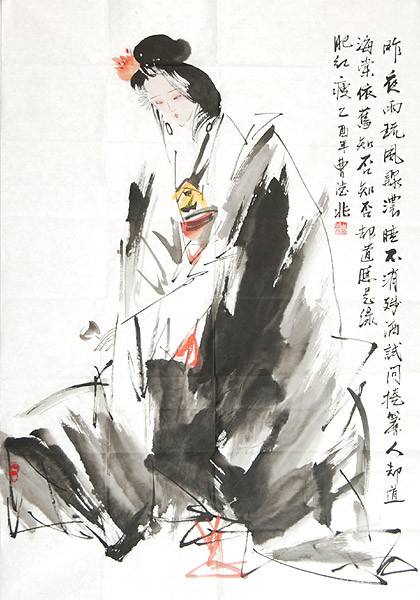 昨夜雨疏風驟濃睡不消残酒試问捲簾人却道
海棠依舊知否知否却道应是绿
肥红瘦乙酉年曹